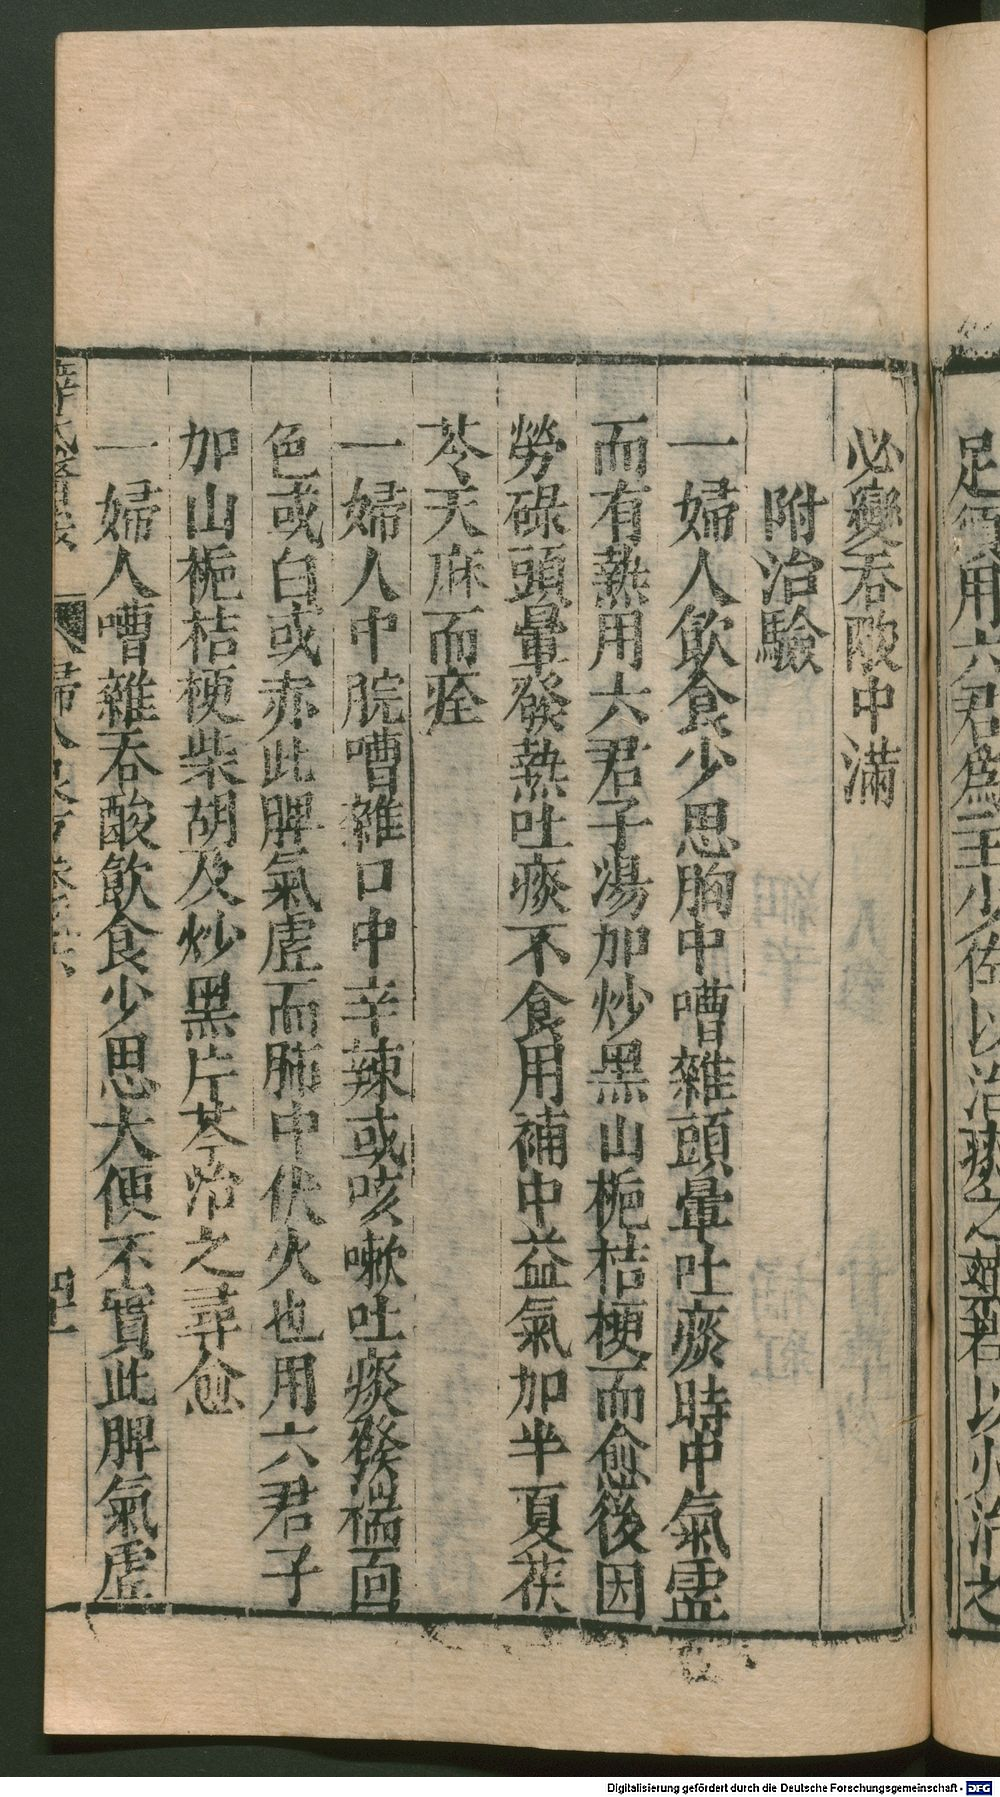 足宜用六君為主少佐以治痰之藥君以火治之
必變吞酸中滿
附治驗
一婦人飲食少思胸中嘈雜頭暈吐痰時中氣虛
而有熱用六君子湯加炒黑山梔桔梗而愈後因
勞碌頭暈發熱吐痰不食用補中益氣加半夏茯
苓天麻而痊
一婦人中脘嘈雜口中辛辣或咳嗽吐痰發搐面
色或白或赤此脾氣虛而肺中伏火也用六君子
加山梔桔梗柴胡及炒黑片芩治之尋愈
一婦人嘈雜吞酸飲食少思大便不實此脾氣虛
薛氏醫按 婦人良方卷之六
Digitalisierung gefördert durch die Deutsche Forschungsgemeinschaft - DFG